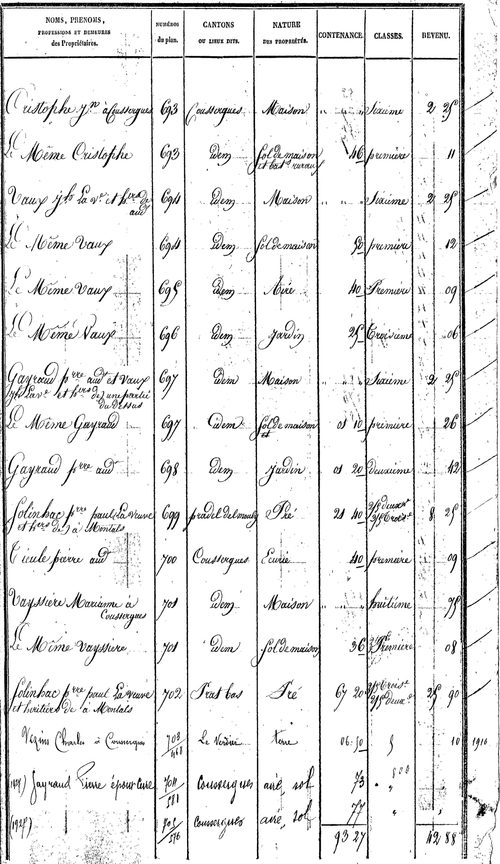 NOMS, PRENOMS, PROFESSIONS ET DEMEURES des Propriétaires. NUMÉROS du plan. CANTONS OU LIEUX DITS. NATURE DES PROPRIÉTÉS. CONTENANCE. CLASSES. REVENU.
Cristophe jn à Coussergues 693 Coussergues Maison " " " Sixième 2 25
Le Même Cristophe 693 idem sol de maison et bat. ruraux 46 première 11
Vaux jh La ve et hers de aud 694 idem Maison " " " Sixième 2 25
Le Même Vaux 694 idem sol de maison 50 première 12
Le Même Vaux 695 idem Aire 40 Première 09
Le Même Vaux 696 idem Jardin 25 Troisième 06
Gayraud prre aud et Vaux jh La ve et hers de, une partie du dessus 697 idem Maison " " " Sixième 2 25
Le Même Gayraud 697 idem sol de maison 01 10 première 26
Gayraud prre aud 698 idem Jardin 01 20 deuxième 42
Solinhac prre paul La Veuve et hers de, à Montals 699 pradel del mouly Pré 21 40 8 25
Cieule pierre aud 700 Coussergues Ecurie 40 première 09
Vayssiere Marianne à Coussergues 701 idem Maison " " " huitième 75
Le Même Vayssiere 701 idem sol de maison 36 Première 08
Solinhac prre paul La Veuve et héritiers de à Montals 702 Prat bas Pré 67 20 25 90
Vezins Charles à Coussergues 703/468 Le Verdier terre 06.50 5 10 1910
Gayraud Pierre époux Cure Coussergues aire, sol 73
Coussergues aire, sol 77
93 27 42,88